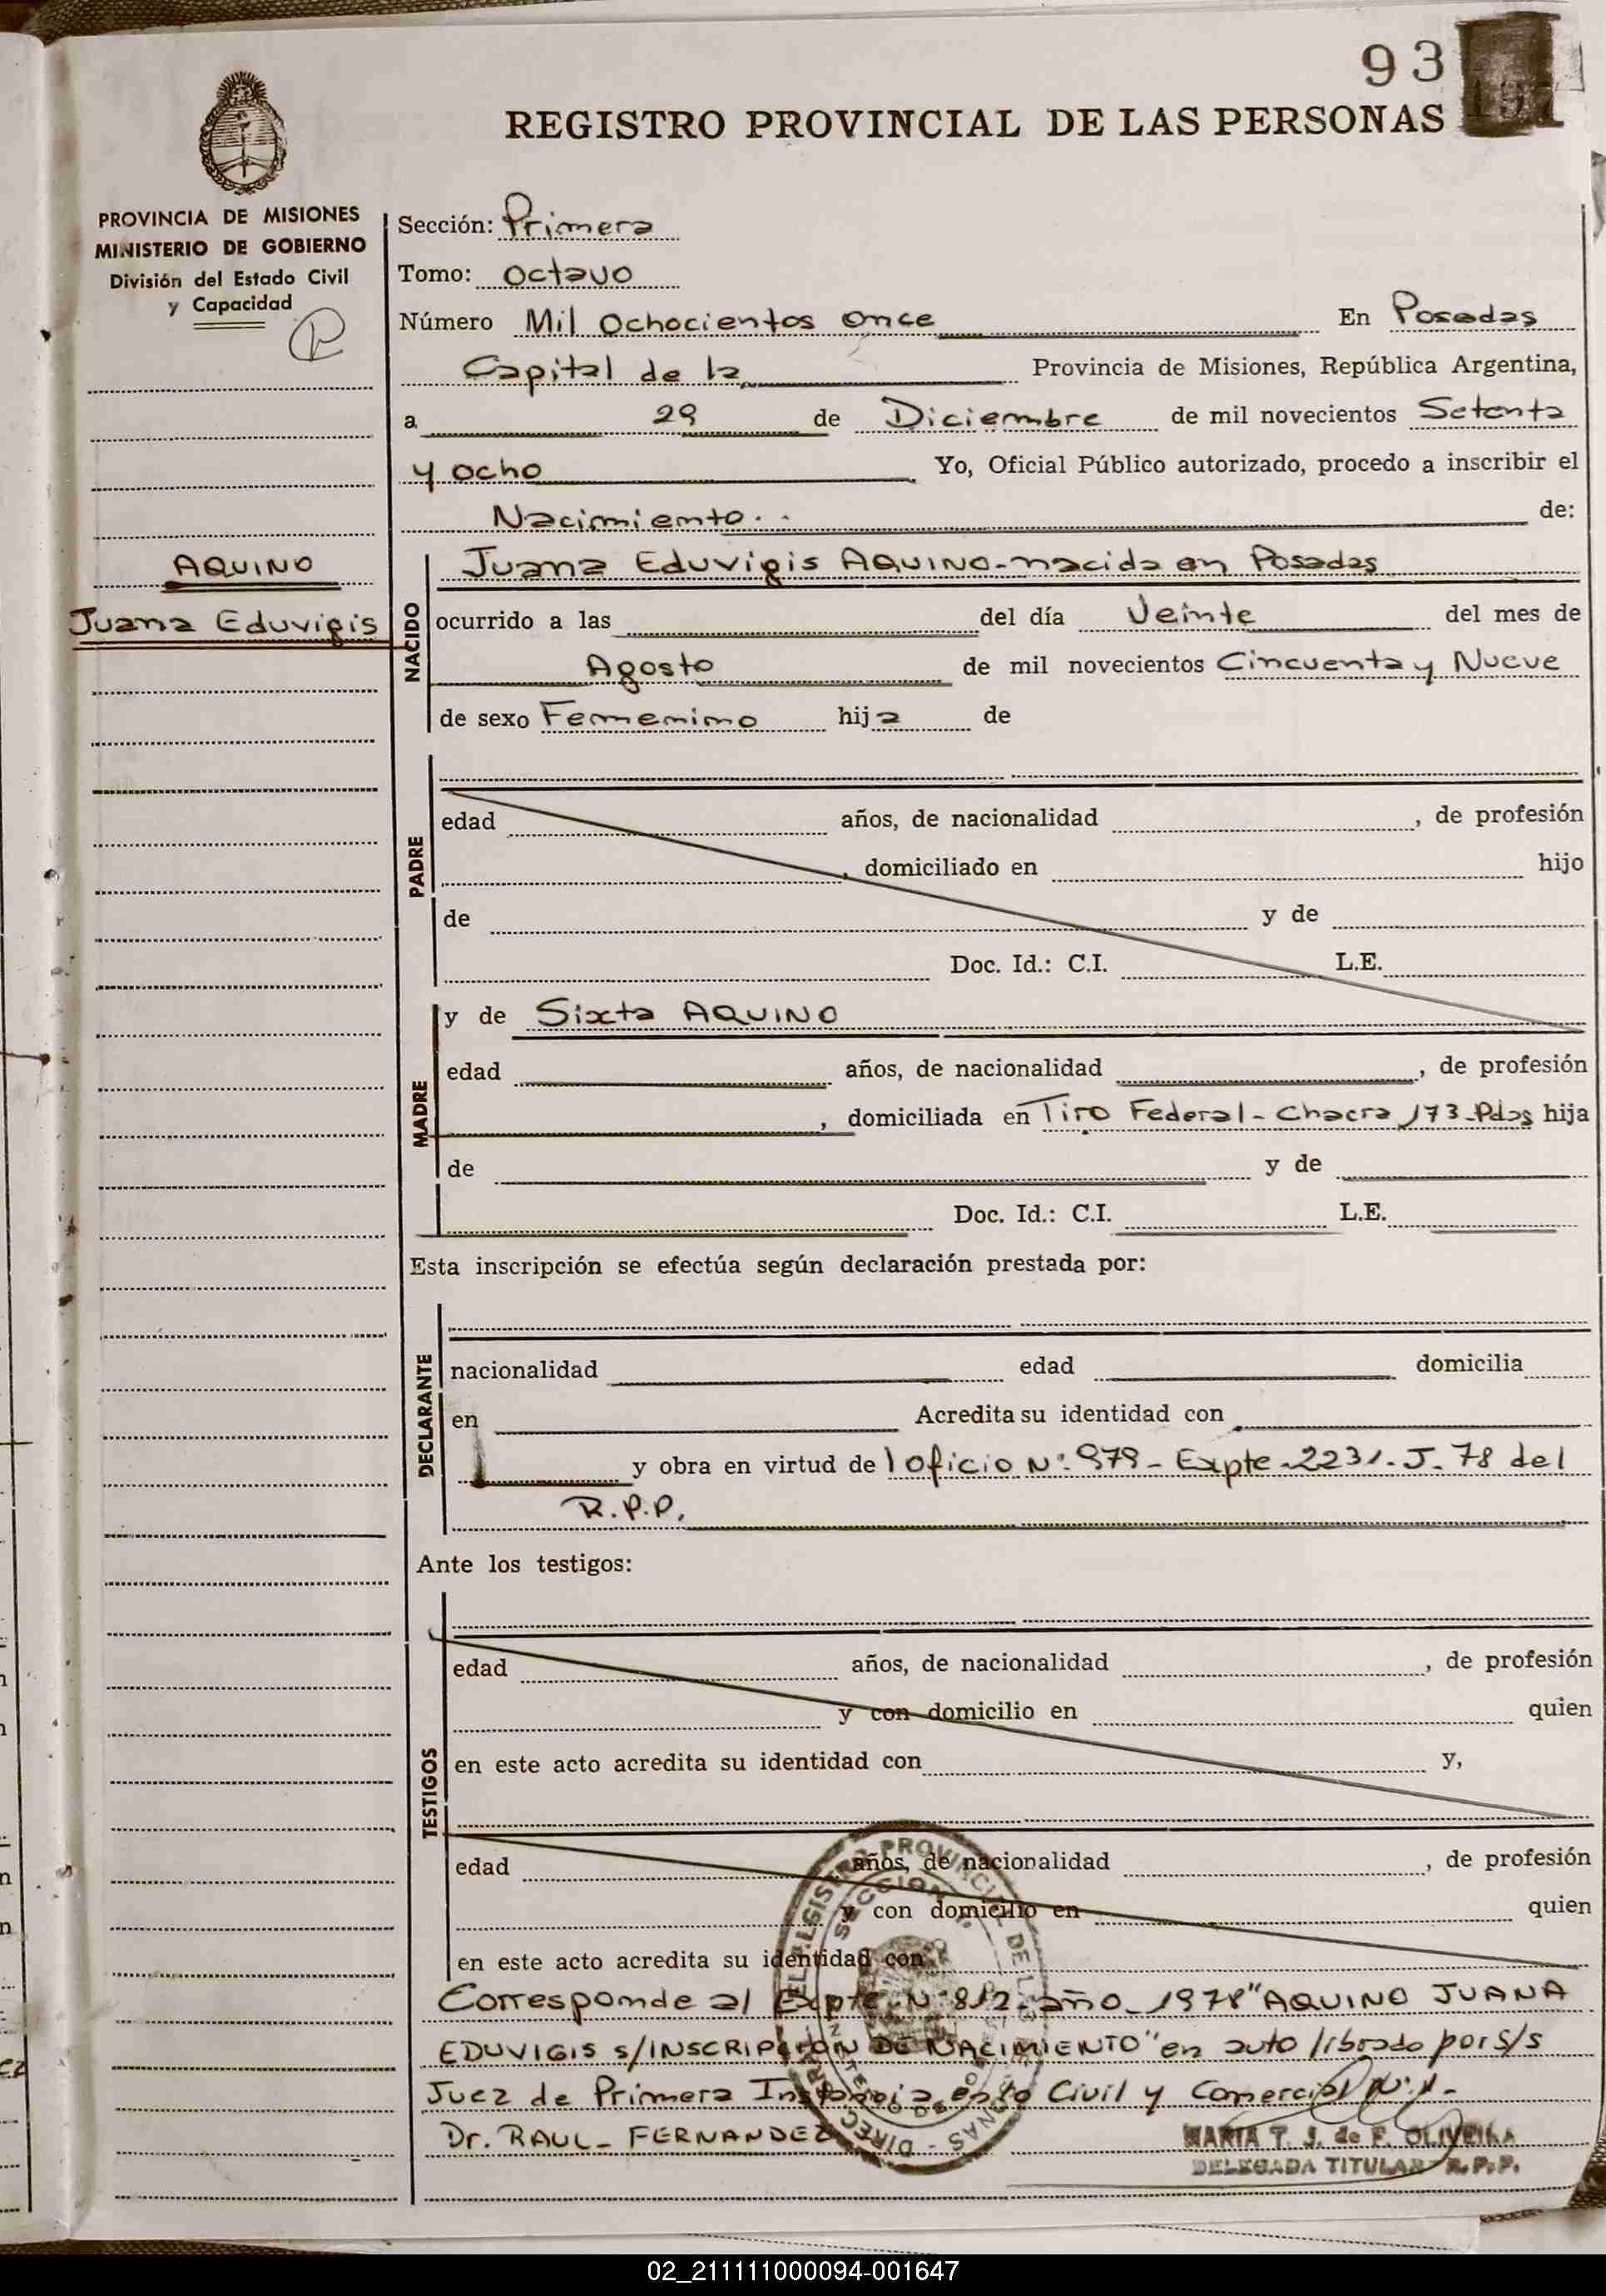 93
REGISTRO PROVINCIAL DE LAS PERSONAS
PROVINCIA DE MISIONES
MINISTERIO DE GOBIERNO
División del Estado Civil
y Capacidad
AQUINO
Juana Eduvigis
Sección: Primera
Tomo: octavo
Número Mil Ochocientos once En Posadas
Capital de la Provincia de Misiones, República Argentina,
a 29 de Diciembre de mil novecientos Setenta
y ocho Yo, Oficial Público autorizado, procedo a inscribir el
Nacimiento.. de:
NACIDO
Juana Eduvigis AQUINO-nacida en Posadas
ocurrido a las del día Veinte del mes de
Agosto de mil novecientos Cincuenta y Nueve
de sexo Femenino hija de
PADRE
edad años, de nacionalidad , de profesión
, domiciliado en hijo
de y de
Doc. Id.: C.I. L.E.
MADRE
y de Sixta AQUINO
edad años, de nacionalidad , de profesión
, domiciliada en Tiro Federal - Chacra 173-Pdas hija
de y de
Doc. Id.: C.I. L.E.
Esta inscripción se efectúa según declaración prestada por:
DECLARANTE
nacionalidad edad domicilia
en Acredita su identidad con
y obra en virtud del oficio Nº 979 - Expte-2231-J-78 del
R.P.P.
Ante los testigos:
TESTIGOS
edad años, de nacionalidad , de profesión
y con domicilio en quien
en este acto acredita su identidad con y,
edad años, de nacionalidad , de profesión
y con domicilio en quien
en este acto acredita su identidad con
Corresponde al Expte-Nº 812-año-1978 "AQUINO JUANA
EDUVIGIS s/INSCRIPCION DE NACIMIENTO" en auto librado por S/s
Juez de Primera Instancia en lo Civil y Comercial Nº 1-
Dr. RAUL- FERNANDEZ
MARIA T. J. de F. OLIVEIRA
DELEGADA TITULAR R.P.P.
02_211111000094-001647